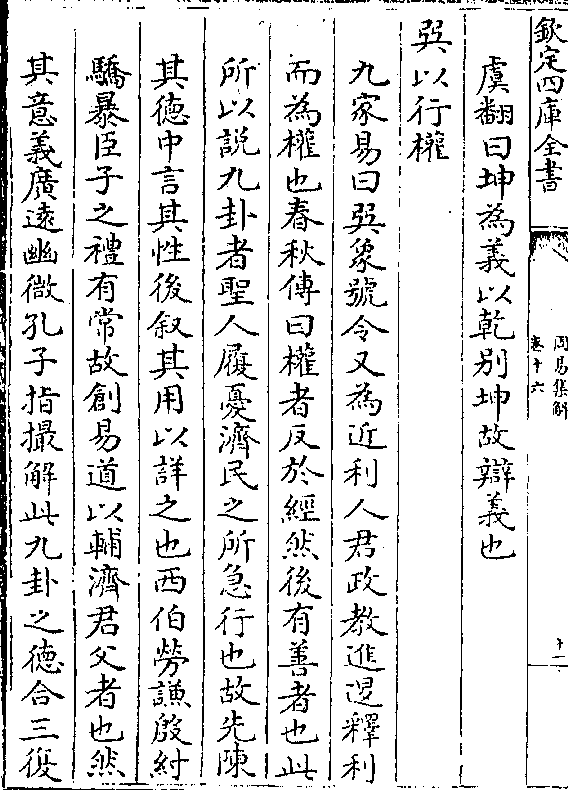 欽定四庫全書
周易集解
卷十六
十一
虞翻曰坤為義以乾別坤故辯義也
巽以行權
九家易曰巽象號令又為近利人君政教進退釋利
而為權也春秋傳曰權者反於經然後有善者也此
所以說九卦者聖人履憂濟民之所急行也故先陳
其德中言其性後叙其用以詳之也西伯勞謙殷紂
驕暴臣子之禮有常故創易道以輔濟君父者也然
其意義廣遠幽微孔子指撮解此九卦之德合三復